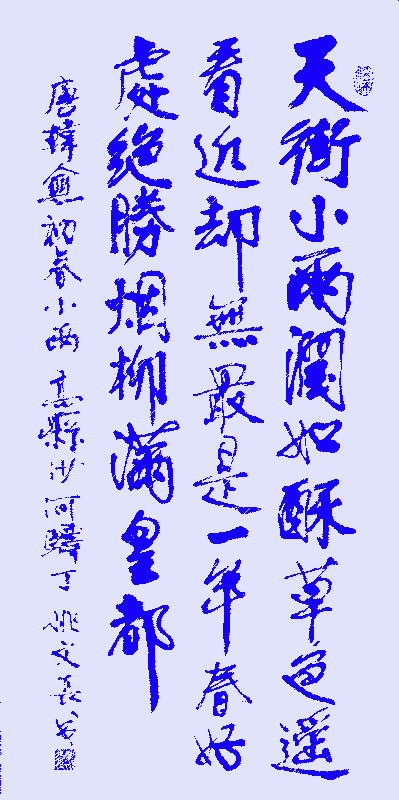 天街小雨潤如酥草色遥
看近却無最是一年春好
處絶勝烟柳滿皇都
唐韓愈初春小雨 高縣沙河驛丁 姚文長书